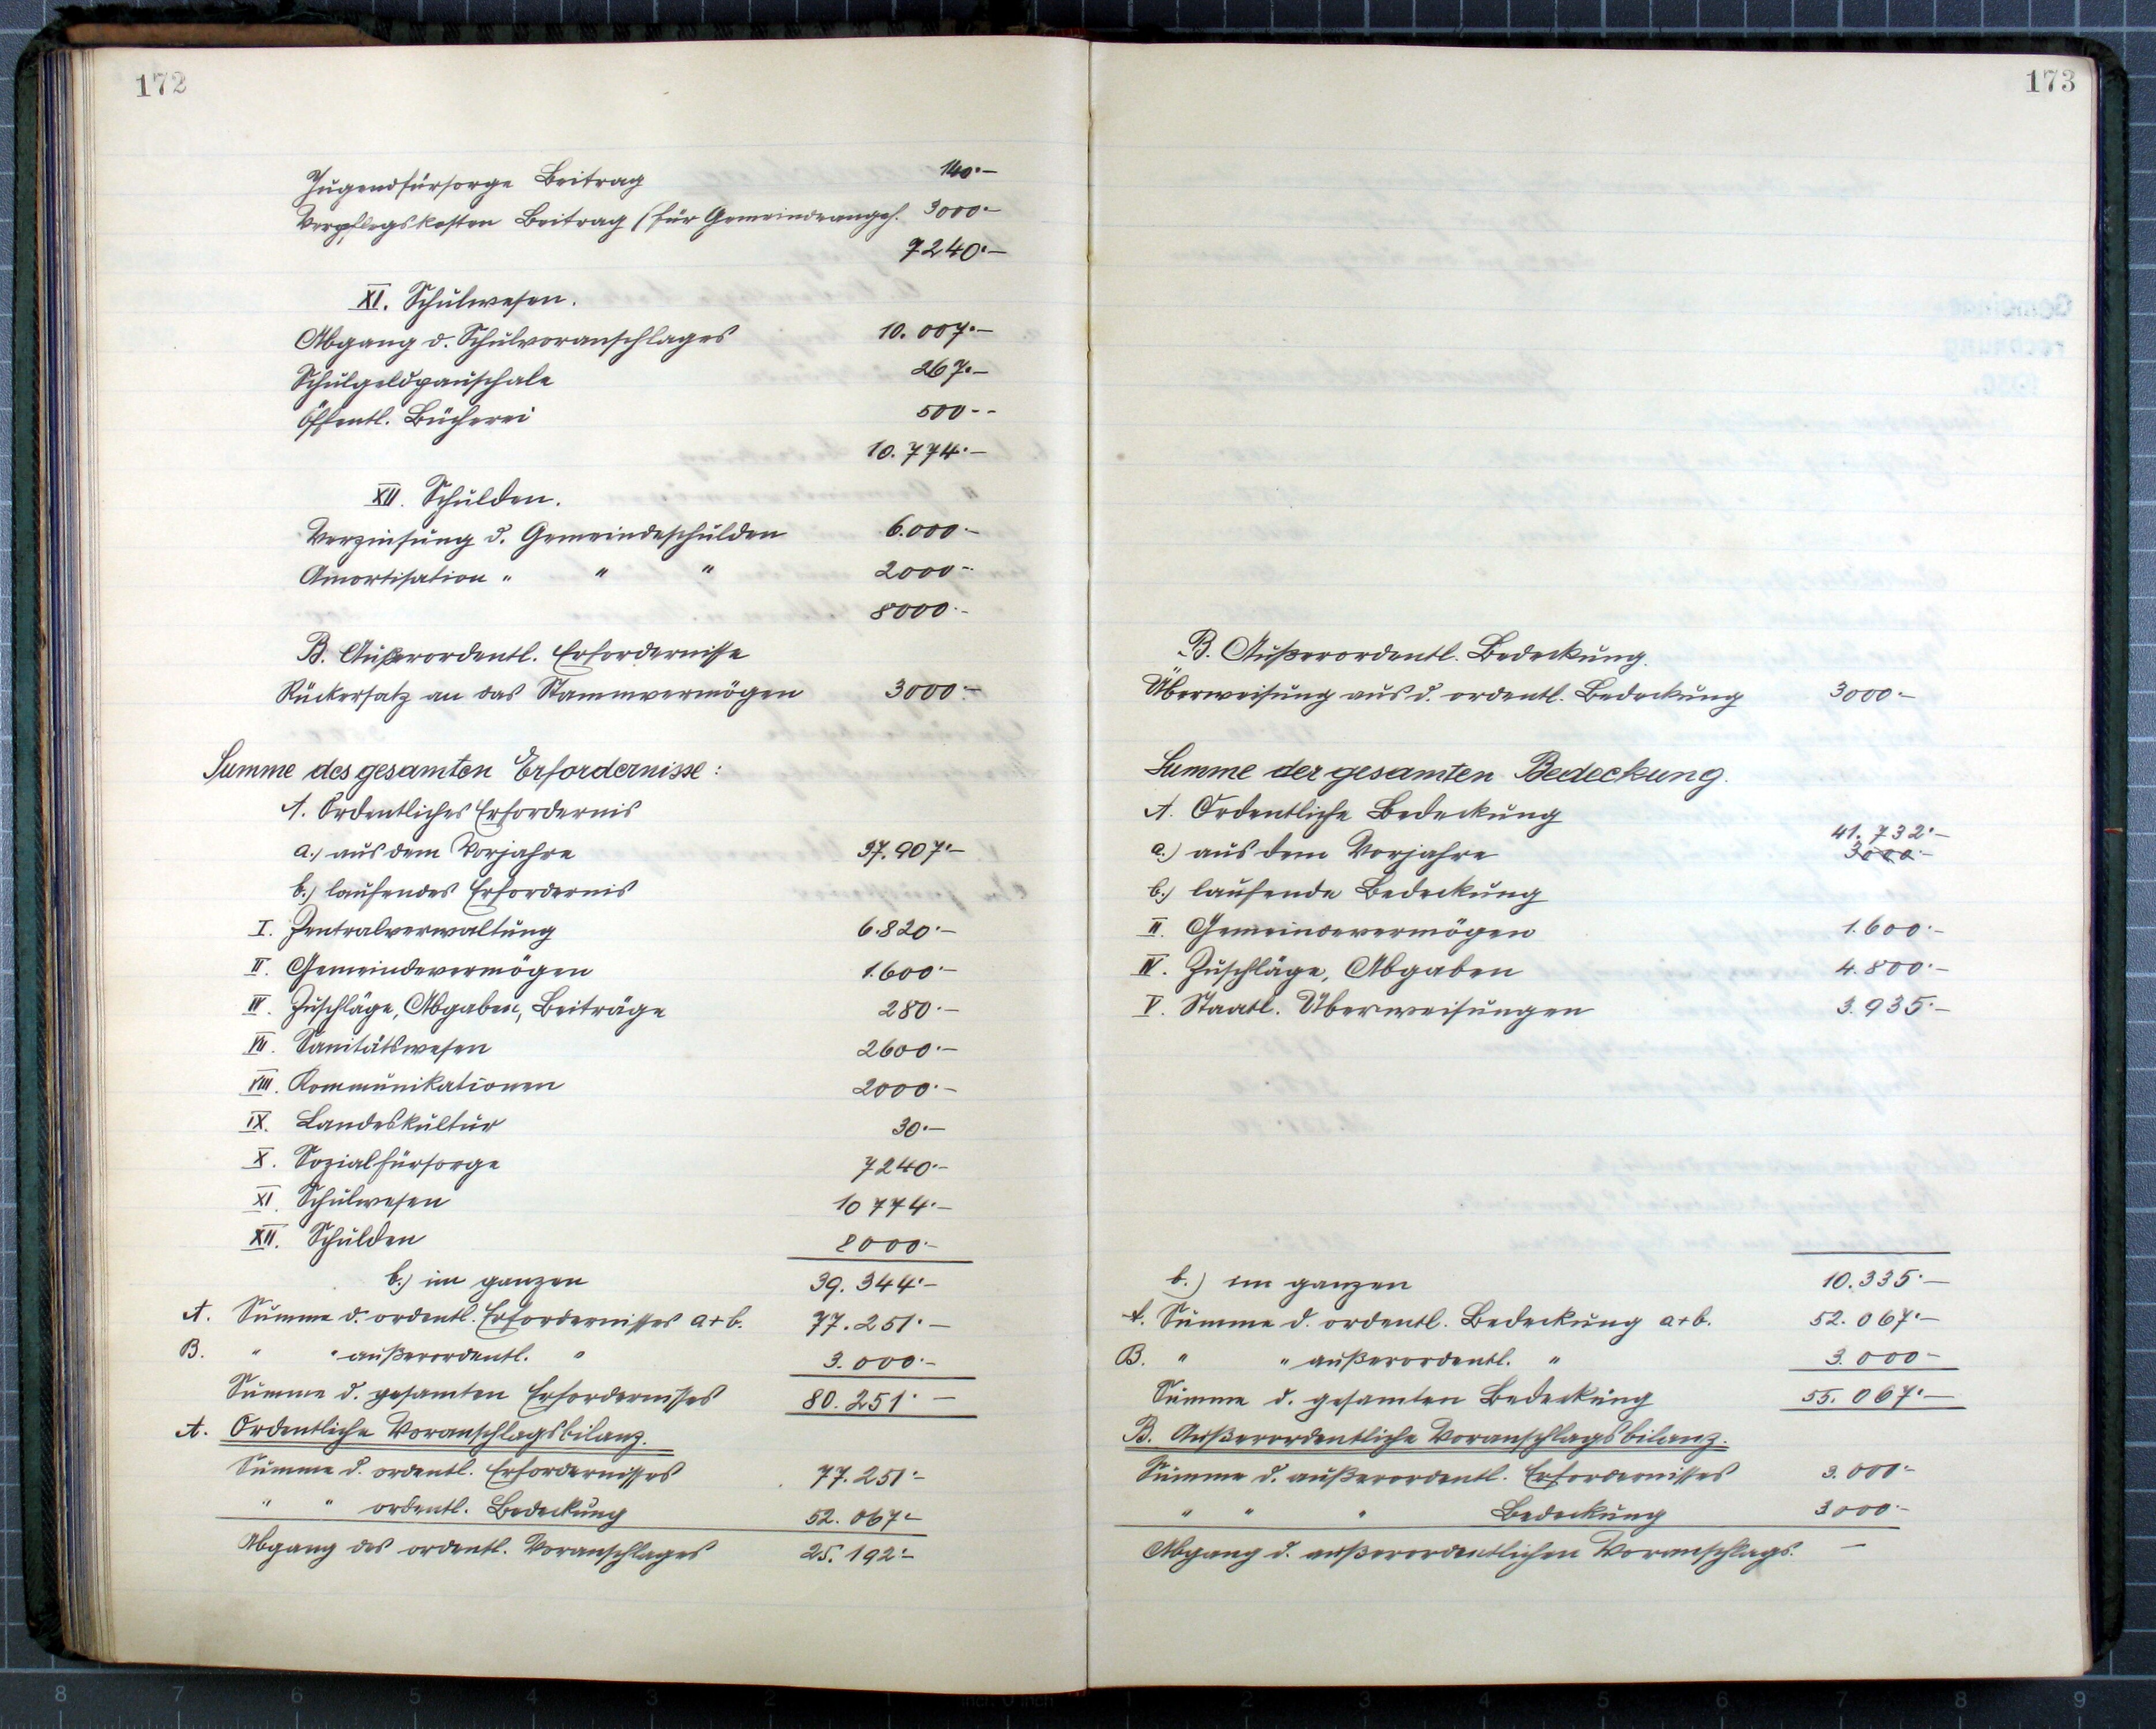 172
Jugendfürsorge Beitrag 140.-
Verpflegskosten Beitrag (für Gemeindeangeh. 3000.-
7240.-
XI. Schulwesen.
Abgang d. Schulvoranschlages 10.007.-
Schulgeldpauschale 267.-
Öffentl. Bücherei 500.-
10.774.-
XII. Schulden.
Verzinsung d. Gemeindeschulden 6.000.-
Amortisation " " " 2000.-
8000.-
B. Außerordentl. Erfordernisse
Rückersatz an das Stammvermögen 3000.-
Summe des gesamten Erfordernisse:
A. Ordentliches Erfordernis
a.) aus dem Vorjahre 37.907.-
b.) laufendes Erfordernis
I. Zentralverwaltung 6.820.-
II. Gemeindevermögen 1.600.-
IV. Zuschläge, Abgaben, Beiträge 280.-
VII. Sanitätswesen 2600.-
VIII. Kommunikationen 2000.-
IX. Landeskultur 30.-
X. Sozialfürsorge 7240.-
XI. Schulwesen 10774.-
XII. Schulden 8000.-
b.) im ganzen 39.344.-
A. Summe d. ordentl. Erfordernisses a+b. 77.251.-
B. " " außerordentl. " 3.000.-
Summe d. gesamten Erfordernisses 80.251.-
A. Ordentliche Voranschlagsbilanz.
Summe d. ordentl. Erfordernisses 77.251.-
" " ordentl. Bedeckung 52.067.-
Abgang des ordentl. Voranschlages 25.192.-
173
B. Außerordentl. Bedeckung.
Überweisung aus d. ordentl. Bedeckung 3000.-
Summe der gesamten Bedeckung.
A. Ordentliche Bedeckung
41.732.-
a.) aus dem Vorjahre 3000.-
b.) laufende Bedeckung
II. Gemeindevermögen 1.600.-
IV. Zuschläge, Abgaben 4.800.-
V. Staatl. Überweisungen 3.935.-
b.) im ganzen 10.335.-
A. Summe d. ordentl. Bedeckung a+b. 52.067.-
B. " " außerordentl. " 3.000-
Summe d. gesamten Bedeckung 55.067.-
B. Außerordentliche Voranschlagsbilanz.
Summe d. außerordentl. Erfordernisses 3.000.-
" " " Bedeckung 3000.-
Abgang d. außerordentlichen Voranschlags. -
8 7 6 5 4 3 2 1 1 2 3 4 5 6 7 8 9